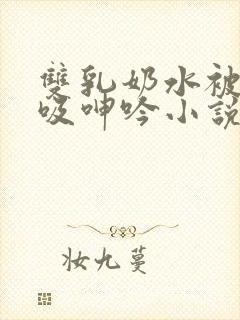 雙乳奶水被
吸呻吟小說
妝九蔓